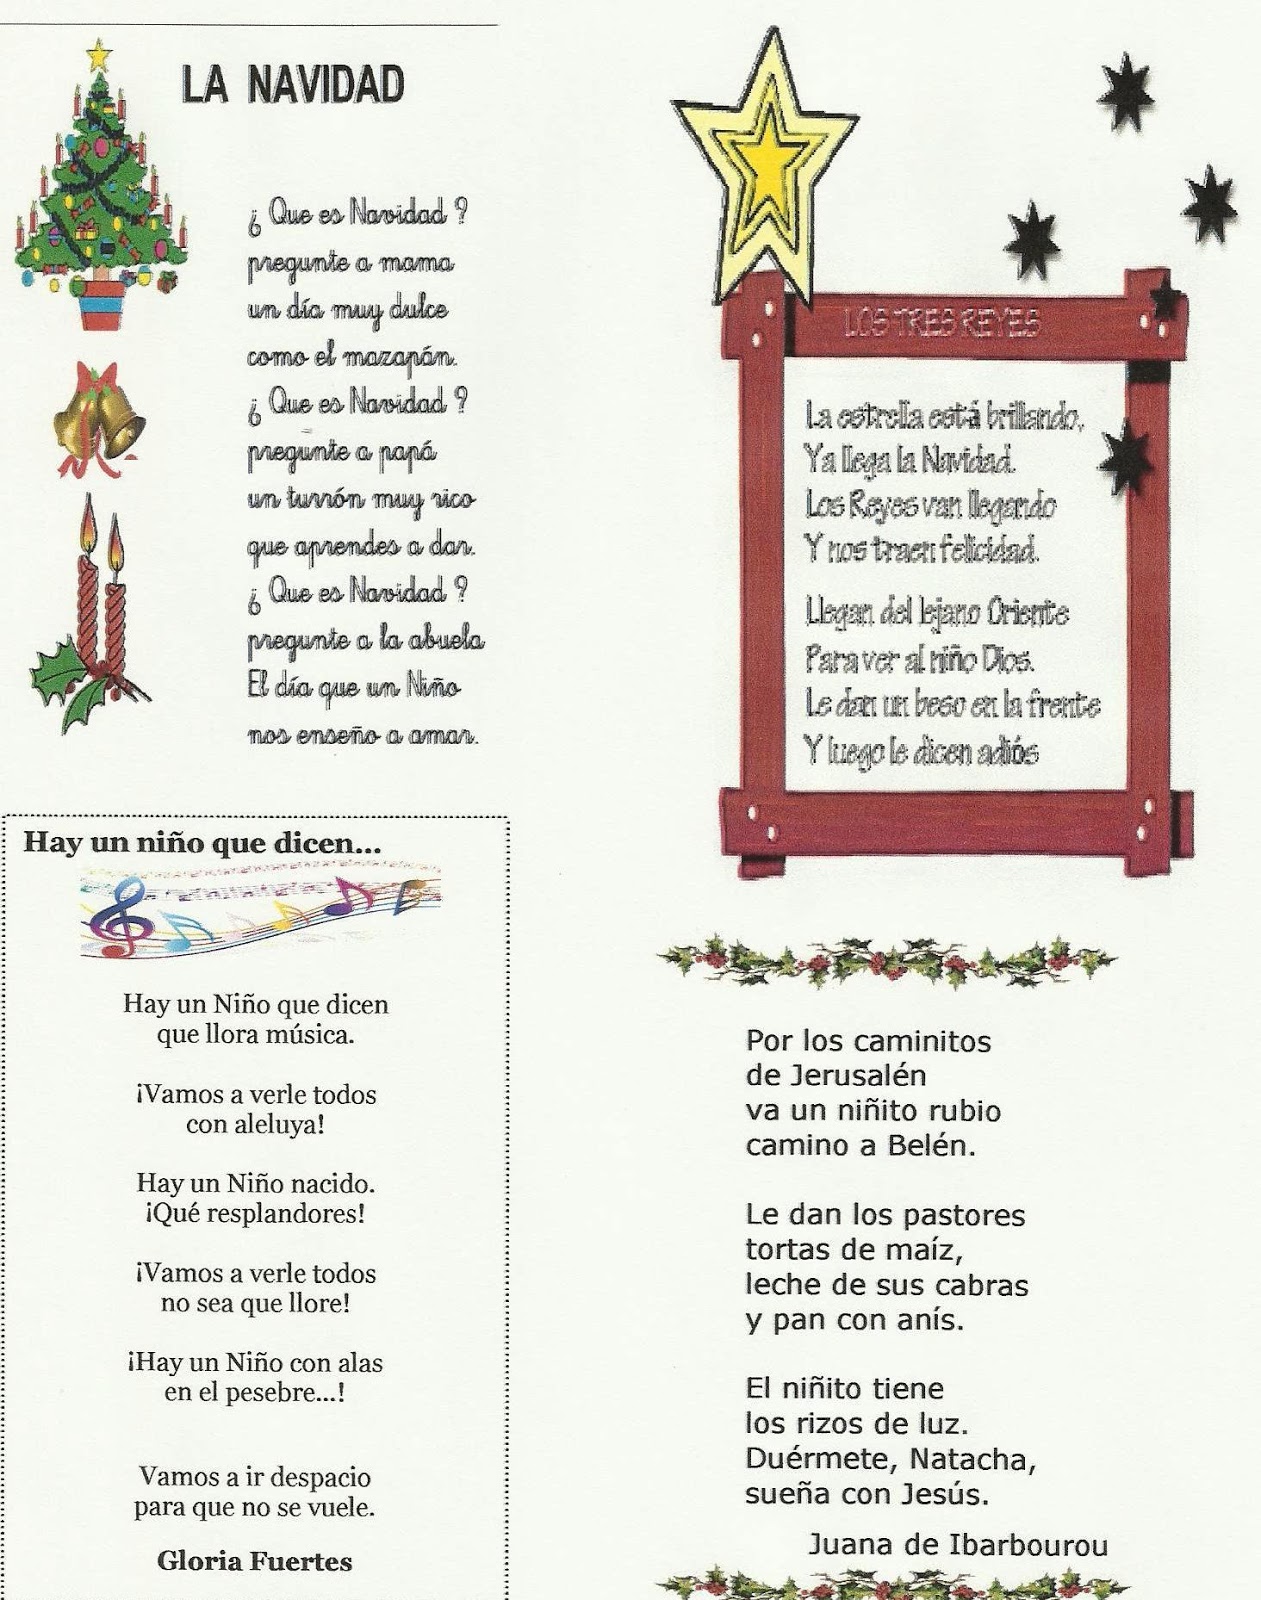 LA NAVIDAD
¿ Que es Navidad ?
pregunte a mama
un día muy dulce
como el mazapán.
¿ Que es Navidad ?
pregunte a papá
un turrón muy rico
que aprendes a dar.
¿ Que es Navidad ?
pregunte a la abuela
El día que un Niño
nos enseño a amar.
LOS TRES REYES
La estrella está brillando,
Ya llega la Navidad.
Los Reyes van llegando
Y nos traen felicidad.
Llegan del lejano Oriente
Para ver al niño Dios.
Le dan un beso en la frente
Y luego le dicen adiós
Hay un niño que dicen...
Hay un Niño que dicen
que llora música.
¡Vamos a verle todos
con aleluya!
Hay un Niño nacido.
¡Qué resplandores!
¡Vamos a verle todos
no sea que llore!
¡Hay un Niño con alas
en el pesebre...!
Vamos a ir despacio
para que no se vuele.
Gloria Fuertes
Por los caminitos
de Jerusalén
va un niñito rubio
camino a Belén.
Le dan los pastores
tortas de maíz,
leche de sus cabras
y pan con anís.
El niñito tiene
los rizos de luz.
Duérmete, Natacha,
sueña con Jesús.
Juana de Ibarbourou